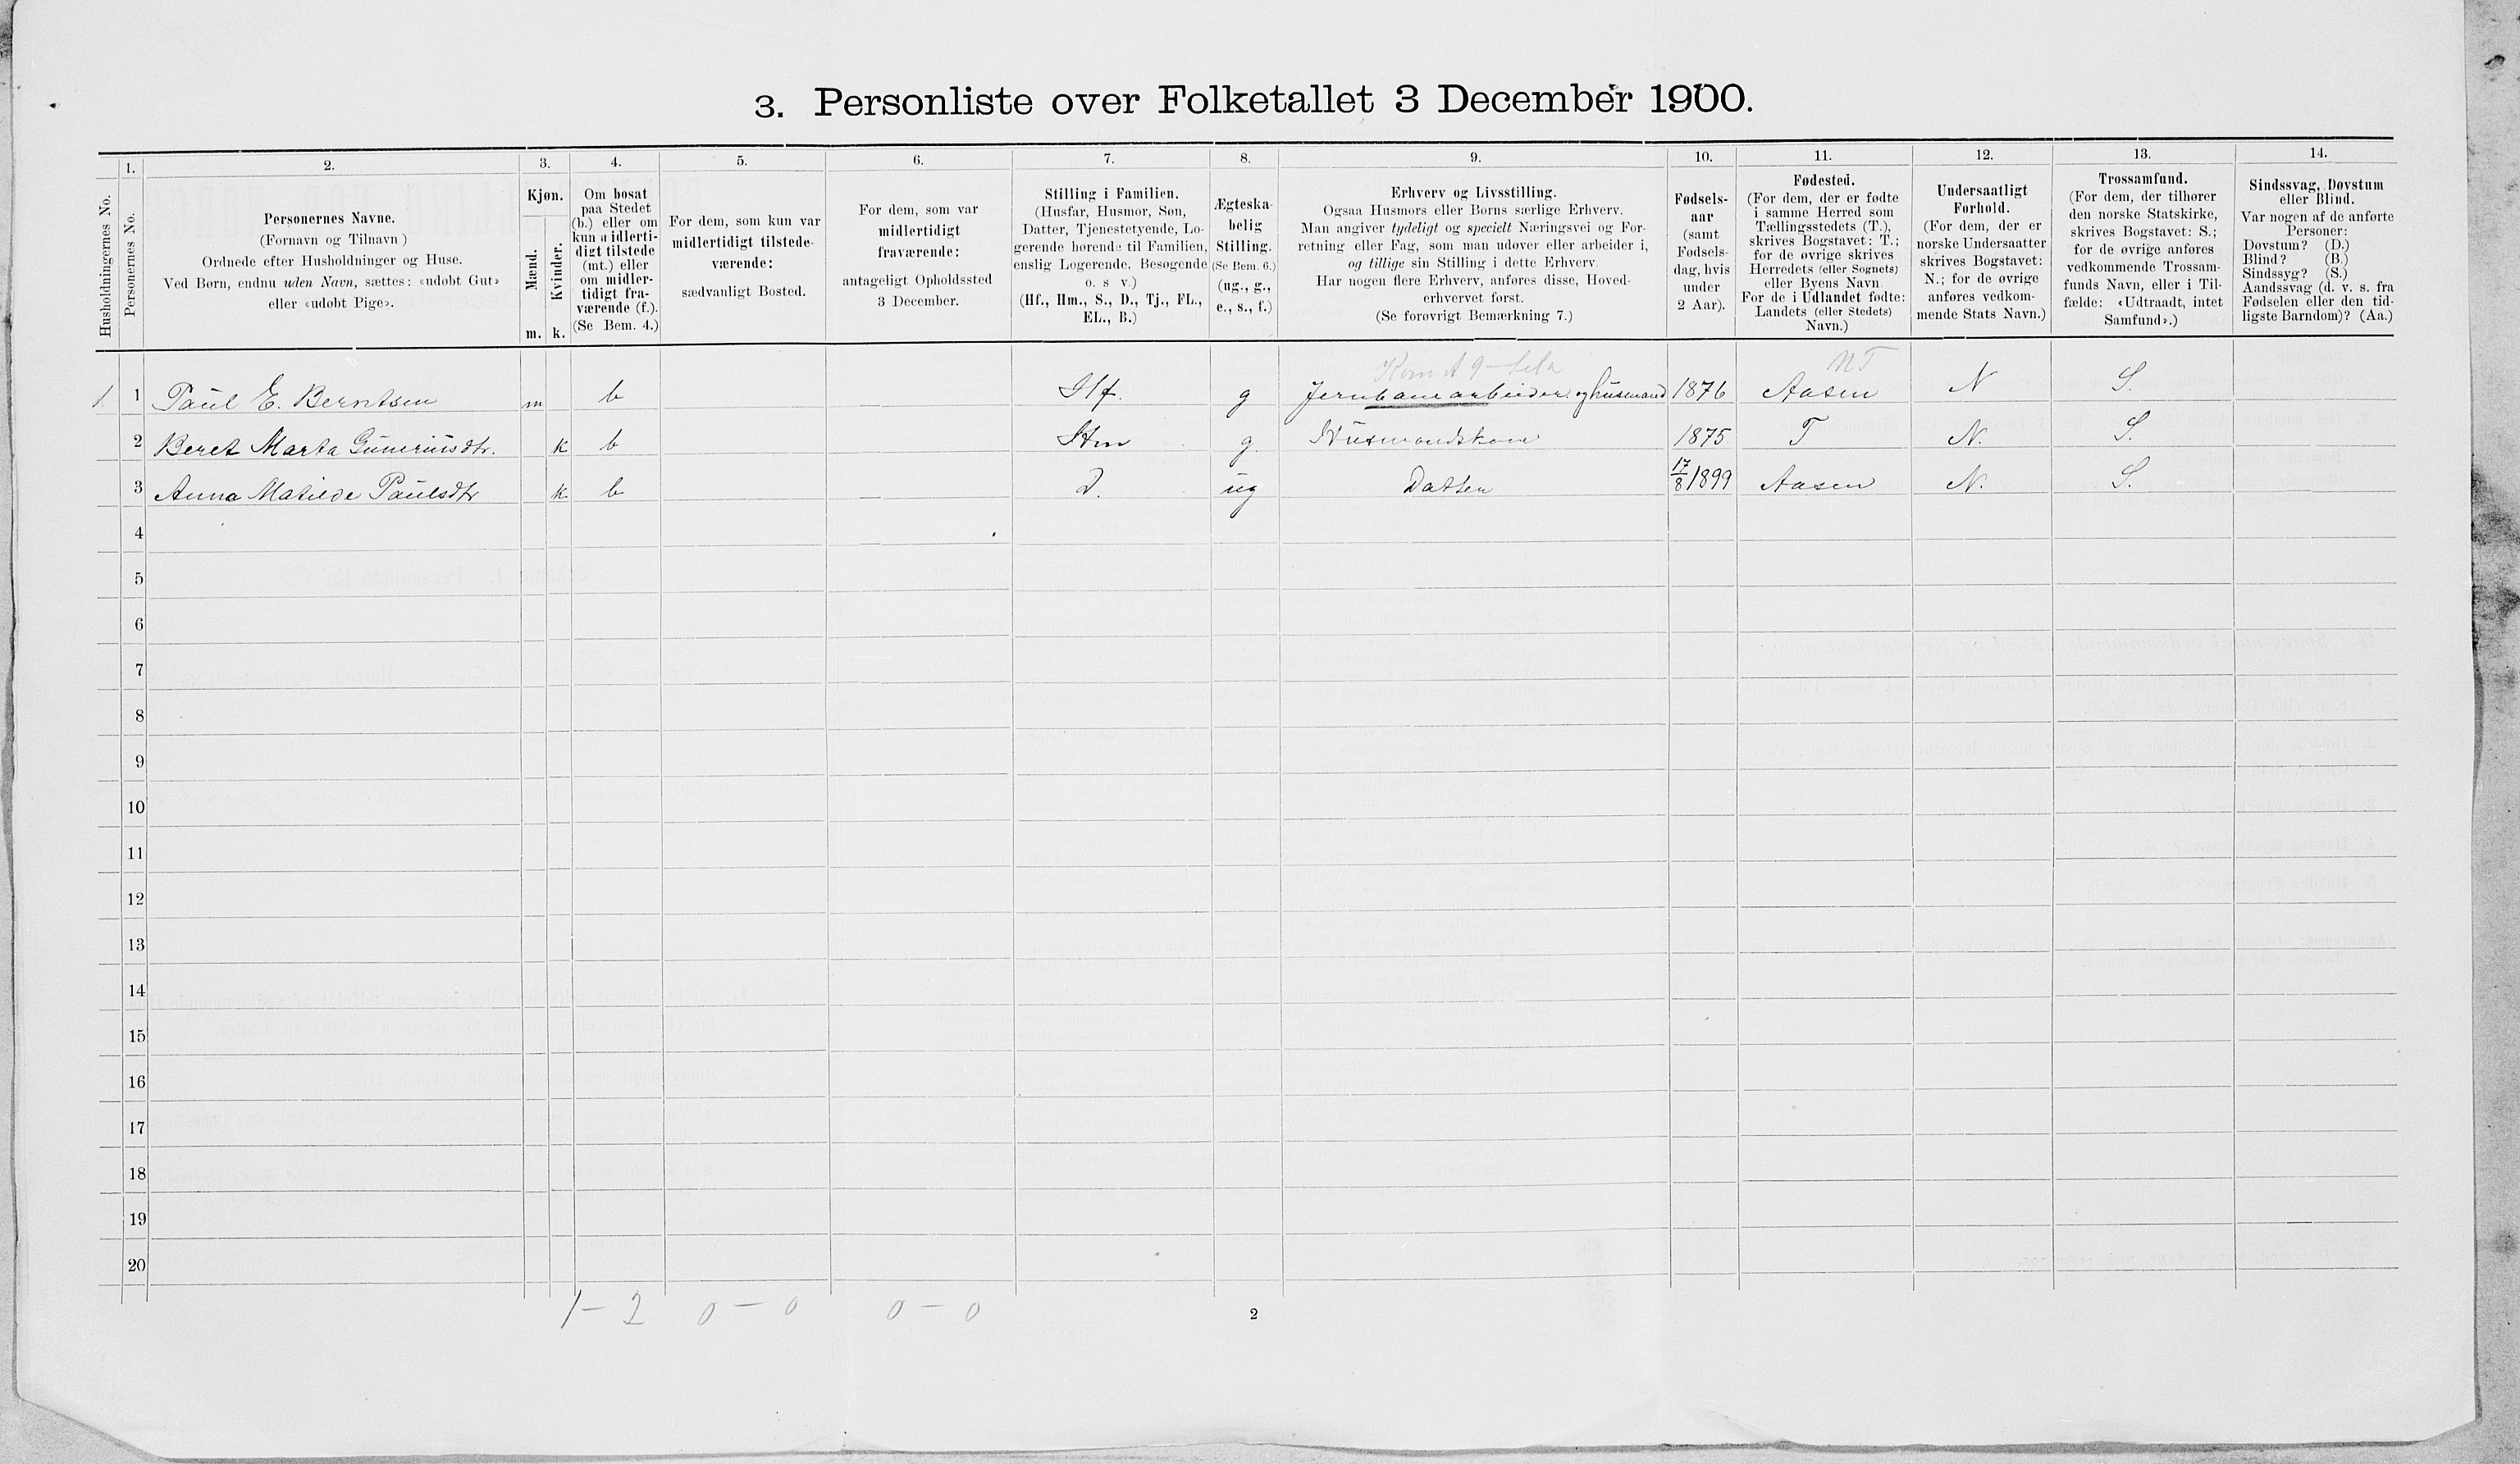 3. Personliste over Folketallet 3 December 1900.
Husholdningernes No.
1.
Personernes No.
2.
Personernes Navne.
(Fornavn og Tilnavn)
Ordnede efter Husholdninger og Huse.
Ved Børn, endnu uden Navn, sættes: «udøbt Gut»
eller «udøbt Pige».
3.
Kjøn.
Mænd.
Kvinder.
m. k.
4.
Om bosat
paa Stedet
(b.) eller om
kun midlerti-
digt tilstede
(mt.) eller
om midler-
tidigt fra-
værende (f.).
(Se Bem. 4.)
5.
For dem, som kun var
midlertidigt tilstede-
værende:
sædvanligt Bosted.
6.
For dem, som var
midlertidigt
fraværende:
antageligt Opholdssted
3 December.
7.
Stilling i Familien.
(Husfar, Husmor, Søn,
Datter, Tjenestetyende, Lo-
gerende hørende til Familien,
enslig Logerende, Besøgende
o. s v.)
(Hf., Hm., S., D., Tj., FL.,
EL., B.)
8.
Ægteska-
belig
Stilling.
(Se Bem. 6.)
(ug., g.,
e., s., f.)
9.
Erhverv og Livsstilling.
Ogsaa Husmors eller Børns særlige Erhverv.
Man angiver tydeligt og specielt Næringsvei og For-
retning eller Fag, som man udøver eller arbeider i,
og tillige sin Stilling i dette Erhverv.
Har nogen flere Erhverv, anføres disse, Hoved-
erhvervet først.
(Se forøvrigt Bemærkning 7.)
10.
Fødsels-
aar
(samt
Fødsels-
dag, hvis
under
2 Aar).
11.
Fødested.
(For dem, der er fødte
i samme Herred som
Tællingsstedets (T.),
skrives Bogstavet: T.;
for de øvrige skrives
Herredets (eller Sognets)
eller Byens Navn.
For de i Udlandet fødte:
Landets (eller Stedets)
Navn.)
12.
Undersaatligt
Forhold.
(For dem, der er
norske Undersaatter
skrives Bogstavet:
N.; for de øvrige
anføres vedkom-
mende Stats Navn.)
13.
Trossamfund.
(For dem, der tilhører
den norske Statskirke,
skrives Bogstavet: S.;
for de øvrige anføres
vedkommende Trossam-
funds Navn, eller i Til-
fælde: «Udtraadt, intet
Samfund».)
14.
Sindssvag, Døvstum
eller Blind.
Var nogen af de anførte
Personer:
Døvstum? (D.)
Blind? (B.)
Sindssyg? (S.)
Aandssvag (d. v. s. fra
Fødselen eller den tid-
ligste Barndom)? (Aa.)
NT
1 1 Paul E. Berntsen m b Hf. g Jernbanearbeider og husmand 1876 Aasen N S.
2 Beret Marta Guneriusdtr. k b Hm g. Husmandskone 1875 T N. S.
3 Anna Matilde Paulsdtr k b D. ug Datter 17/8 1899 Aasen N. S.
4
5
6
7
8
9
10
11
12
13
14
15
16
17
18
19
20
1 – 2 0 – 0 0 – 0
2